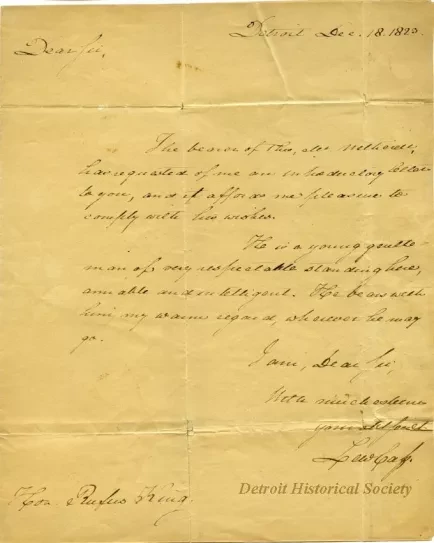 Detroit Dec. 18. 1823.
Dear Sir,
The bearer of this, Mr.
has requested of me an introductory letter
to you, and it affords me pleasure to
comply with his wishes.
He is a young gentle-
man of very respectable standing here,
amiable and intelligent. He bears with
him my warm regard, wherever he may
go.
I am, Dear Sir,
With much esteem
your obt servt
Lew Cass.
Hon. Rufus King.
Detroit Historical Society